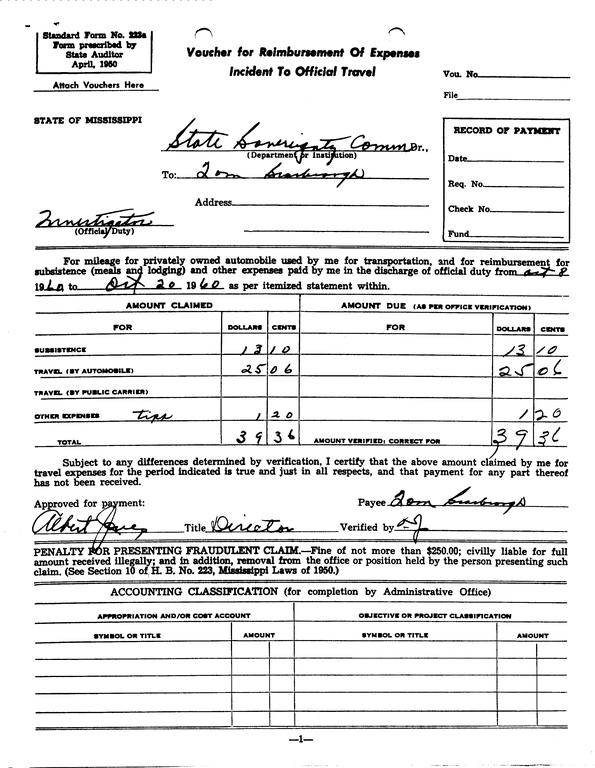 Standard Form No. 223a
Form prescribed by
State Auditor
April, 1950
Attach Vouchers Here
Voucher for Reimbursement Of Expenses
Incident To Official Travel
Vou. No.
File
STATE OF MISSISSIPPI
State Sovereignty Comm Dr.,
(Department or Institution)
To: Tom Scarbrough
Address
Investigator
(Official Duty)
RECORD OF PAYMENT
Date
Req. No.
Check No.
Fund
For mileage for privately owned automobile used by me for transportation, and for reimbursement for
subsistence (meals and lodging) and other expenses paid by me in the discharge of official duty from Oct 8
1960 to Oct 20 1960 as per itemized statement within.
AMOUNT CLAIMED AMOUNT DUE (AS PER OFFICE VERIFICATION)
FOR DOLLARS CENTS FOR DOLLARS CENTS
SUBSISTENCE 13 10 13 10
TRAVEL (BY AUTOMOBILE) 25 06 25 06
TRAVEL (BY PUBLIC CARRIER)
OTHER EXPENSES tips 1 20 1 20
TOTAL 39 36 AMOUNT VERIFIED: CORRECT FOR 39 36
Subject to any differences determined by verification, I certify that the above amount claimed by me for
travel expenses for the period indicated is true and just in all respects, and that payment for any part thereof
has not been received.
Approved for payment: Payee Tom Scarbrough
Albert Jones Title Director Verified by aj
PENALTY FOR PRESENTING FRAUDULENT CLAIM.—Fine of not more than $250.00; civilly liable for full
amount received illegally; and in addition, removal from the office or position held by the person presenting such
claim. (See Section 10 of H. B. No. 223, Mississippi Laws of 1950.)
ACCOUNTING CLASSIFICATION (for completion by Administrative Office)
APPROPRIATION AND/OR COST ACCOUNT OBJECTIVE OR PROJECT CLASSIFICATION
SYMBOL OR TITLE AMOUNT SYMBOL OR TITLE AMOUNT
—1—